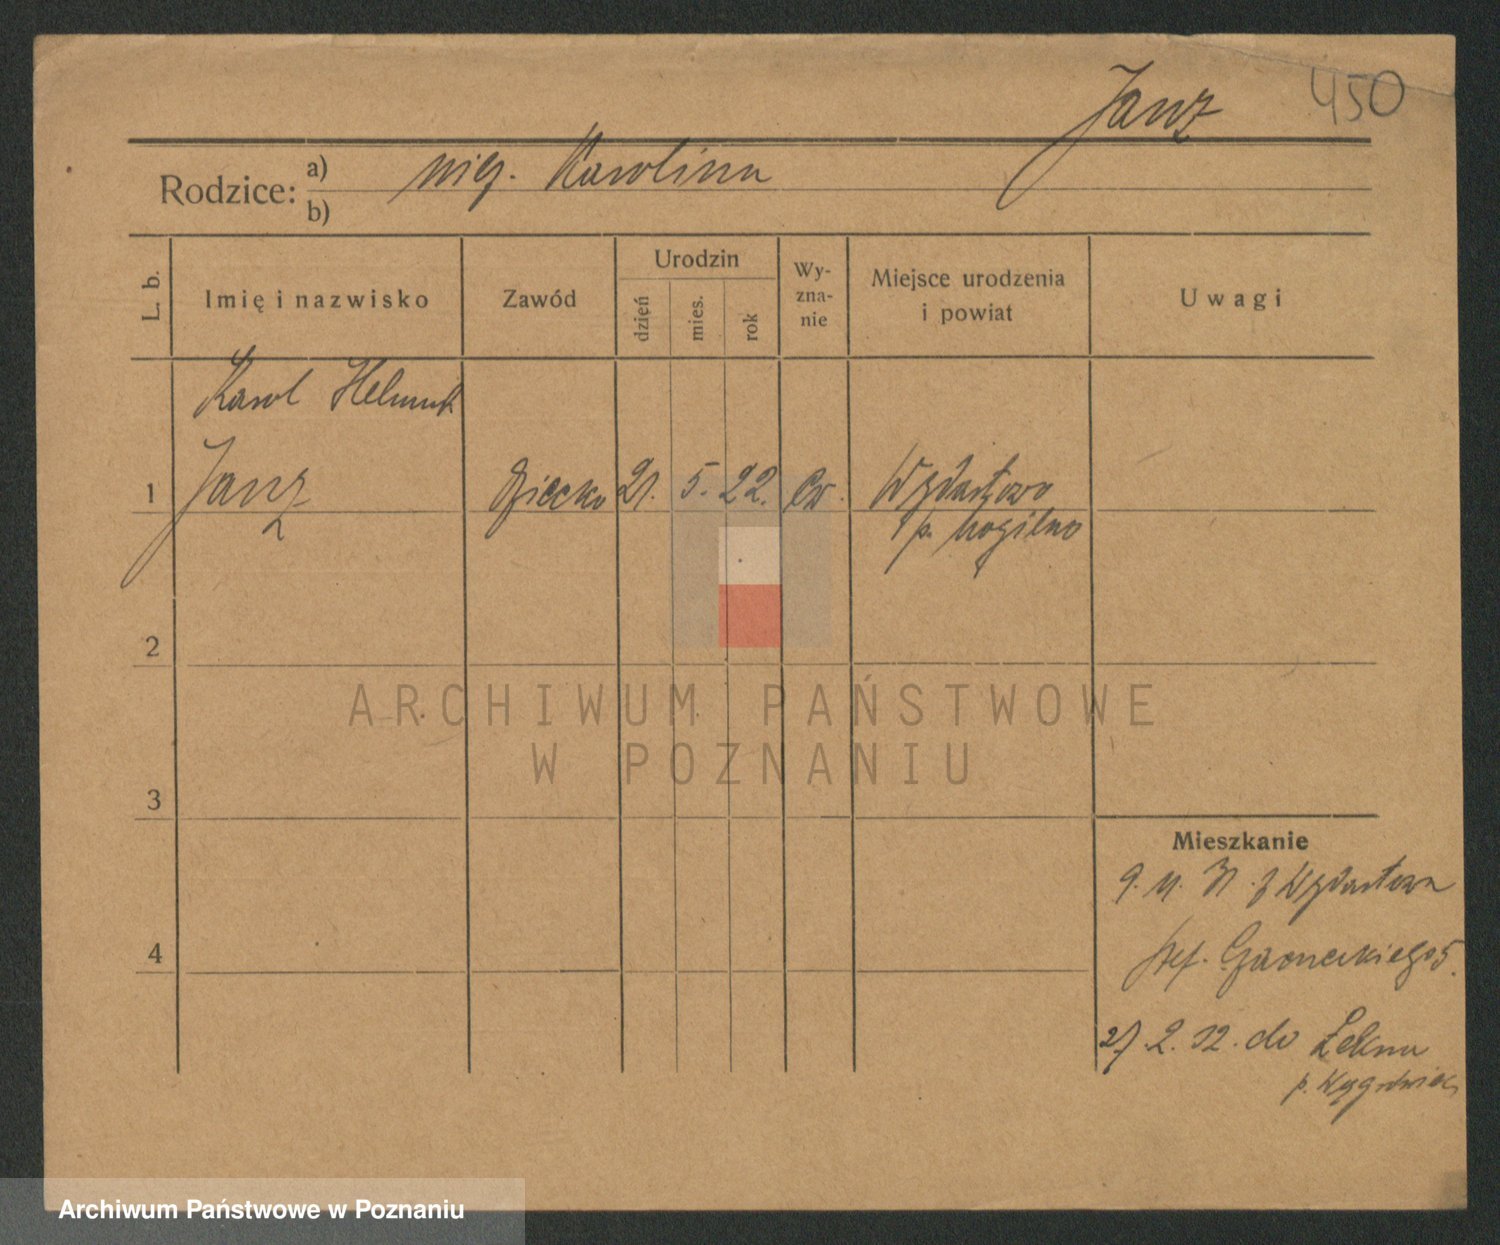 Janz 450
Rodzice: a) nież. Karolina
b)
L. b. Imię i nazwisko Zawód Urodzin dzień mies. rok Wy-zna-nie Miejsce urodzenia i powiat Uwagi
Karol Helmut
1 Janz Dziecko 21. 5. 22. Ew. Wydartowo
p. Mogilno
2
ARCHIWUM PAŃSTWOWE
W POZNANIU
3
Mieszkanie
9. 11. 31. z Wydartowa
Stef. Czarneckiego 5.
4
27. 2. 32. do Łekna
p. Wągrowiec
Archiwum Państwowe w Poznaniu